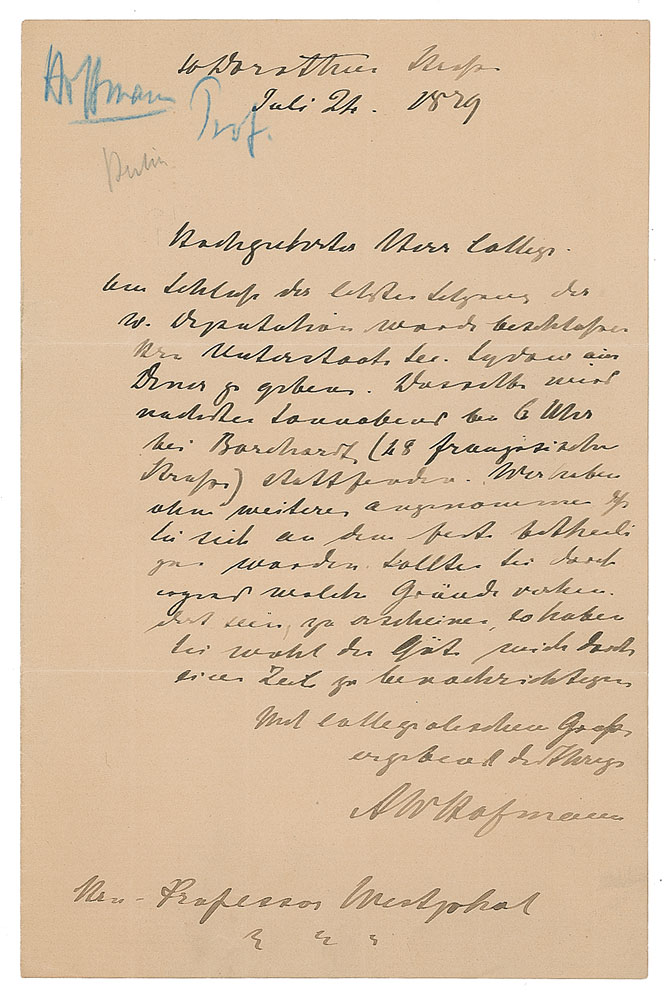 Hoffmann
Prof.
Berlin
10 Dorotheen Strasse
Juli 24. 1879
Hochgeehrter Herr College.
Am Schluße der letzten Sitzung der
w. Deputation wurde beschlossen
Hrn Unterstaats Sec. Sydow ein
Diner zu geben. Dasselbe wird
nächsten Sonnabend um 6 Uhr
bei Borchardt (48 französische
Strasse) stattfinden. Wir haben
ohne weiteres angenommen dß
Sie sich an dem Feste betheili
gen werden. Sollten Sie durch
irgend welche Gründe verhin
dert sein, zu erscheinen, so haben
Sie wohl die Güte mich durch
eine Zeile zu benachrichtigen
Mit collegialischem Gruße
ergebenst der Ihrige
AWHofmann
Hrn Professor Westphal